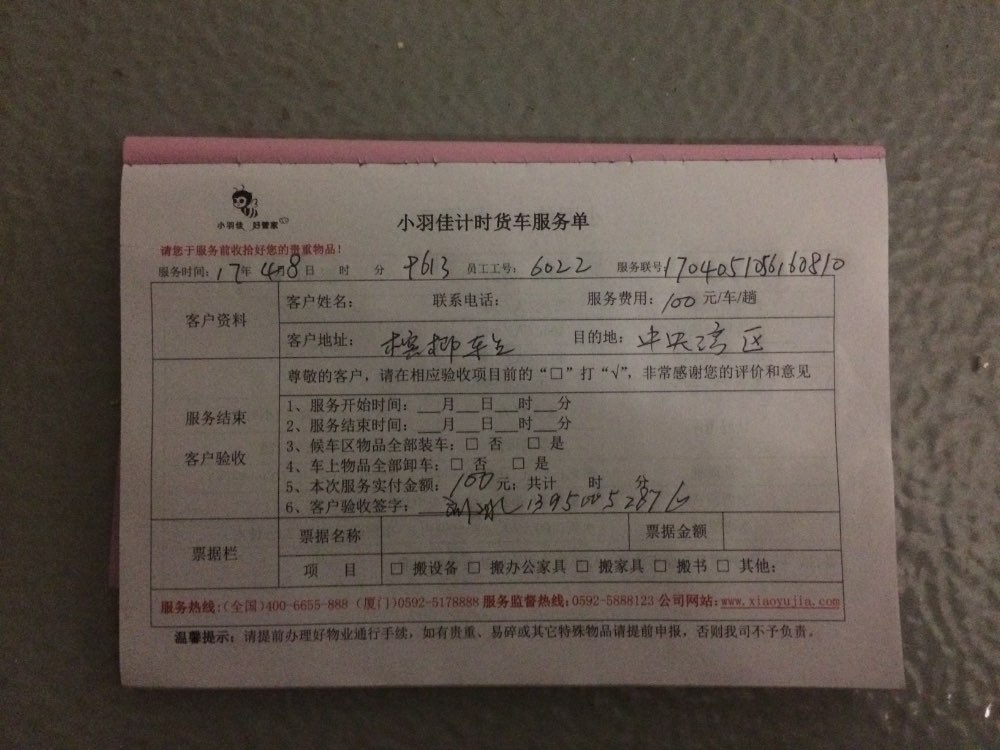 小羽佳 好管家
小羽佳计时货车服务单
请您于服务前收拾好您的贵重物品！
服务时间：17年4月8日 时 分 9613 员工工号：6022 服务联号 1704051056160810
客户资料
客户姓名： 联系电话： 服务费用：100元/车/趟
客户地址：槟榔 目的地：中央湾区
服务结束
客户验收
尊敬的客户，请在相应验收项目前的“□”打“√”，非常感谢您的评价和意见
1、服务开始时间：___月___日___时___分
2、服务结束时间：___月___日___时___分
3、候车区物品全部装车：□ 否 □ 是
4、车上物品全部卸车：□ 否 □ 是
5、本次服务实付金额：100元；共计 时 分
6、客户验收签字： 13950052876
票据栏
票据名称 票据金额
项 目 □ 搬设备 □ 搬办公家具 □ 搬家具 □ 搬书 □ 其他：
服务热线：(全国)400-6655-888 (厦门)0592-5178888 服务监督热线：0592-5888123 公司网站：www.xiaoyujia.com
温馨提示：请提前办理好物业通行手续，如有贵重、易碎或其它特殊物品请提前申报，否则我司不予负责。